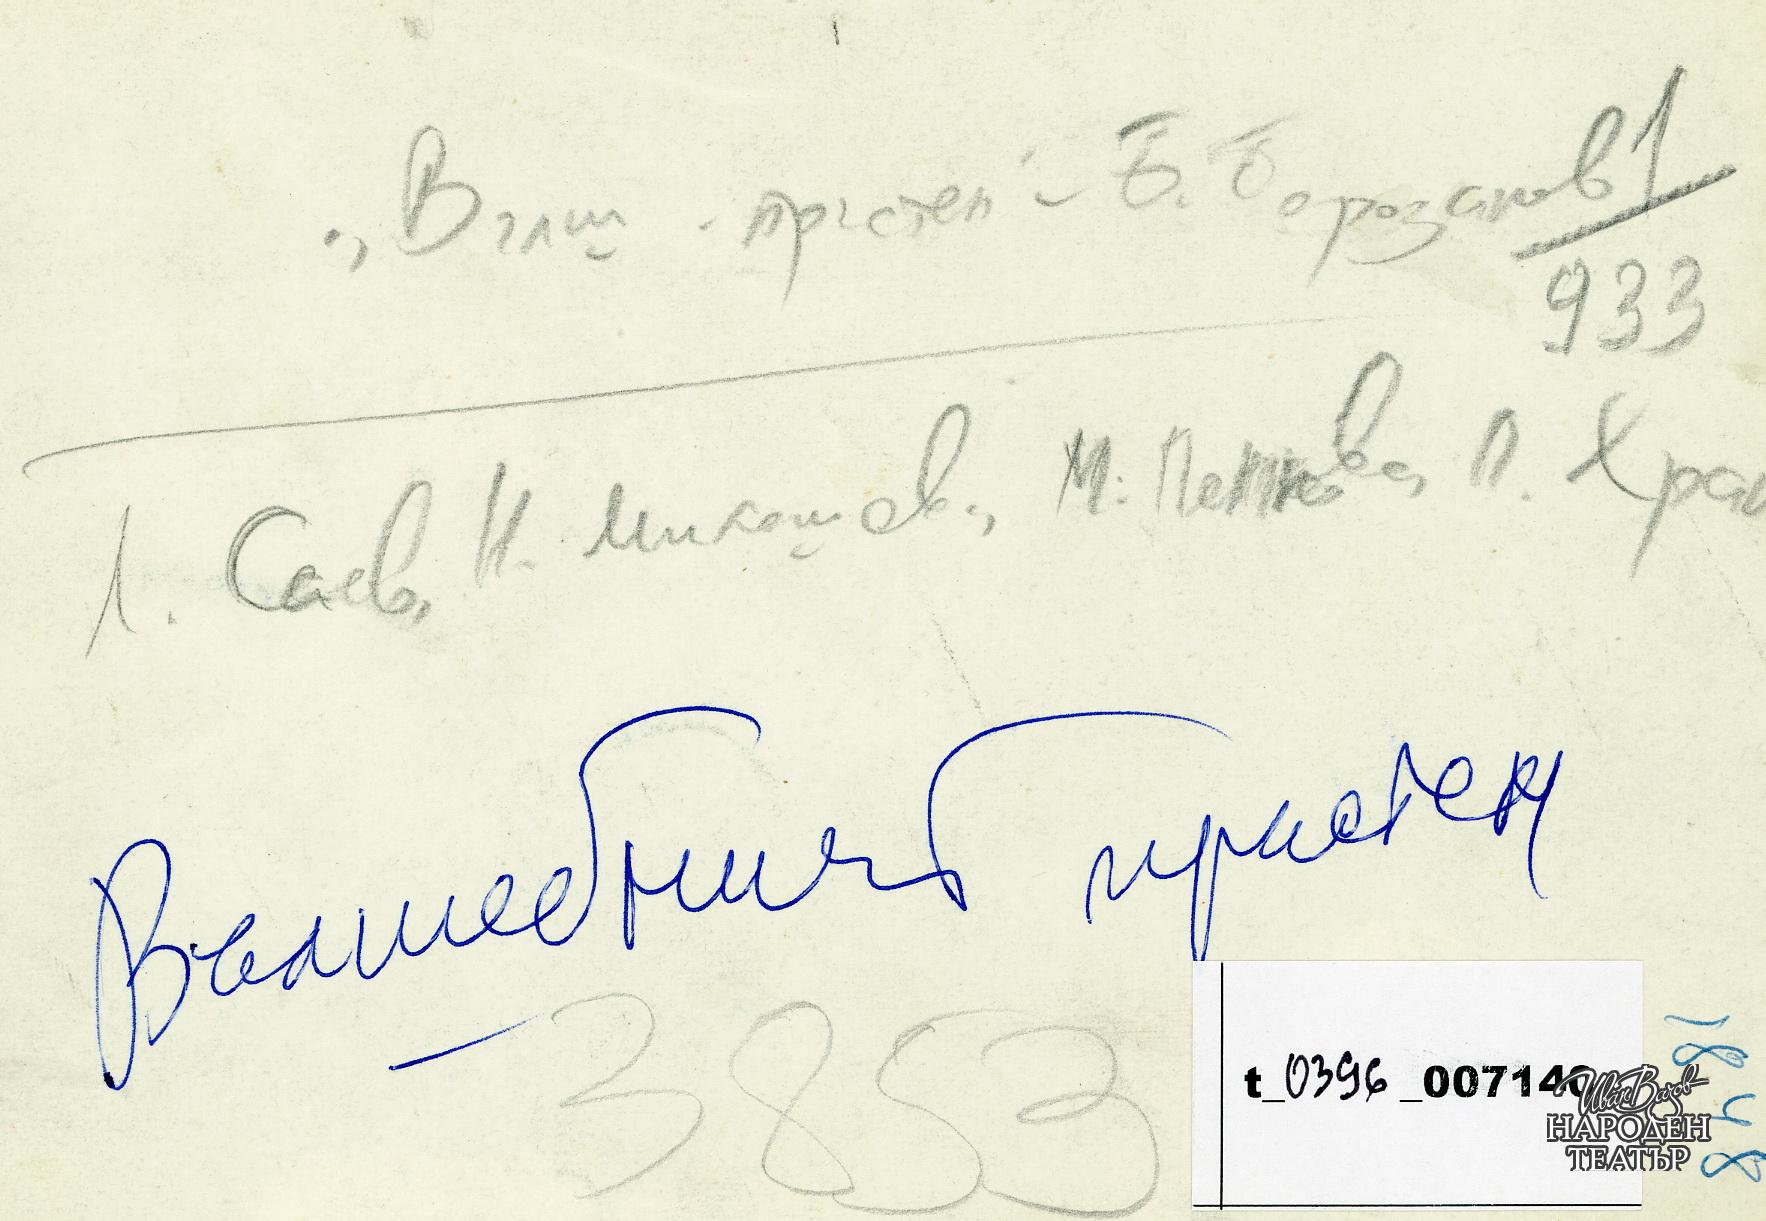 „Вълш. пръстен" - Б. Борозанов 1/933
Л. Саев, Н. Микошов, М. Пенкова, П. Хран
Вълшебният пръстен
3853
t_0396_007140
1848
Иван Вазов
НАРОДЕН
ТЕАТЪР